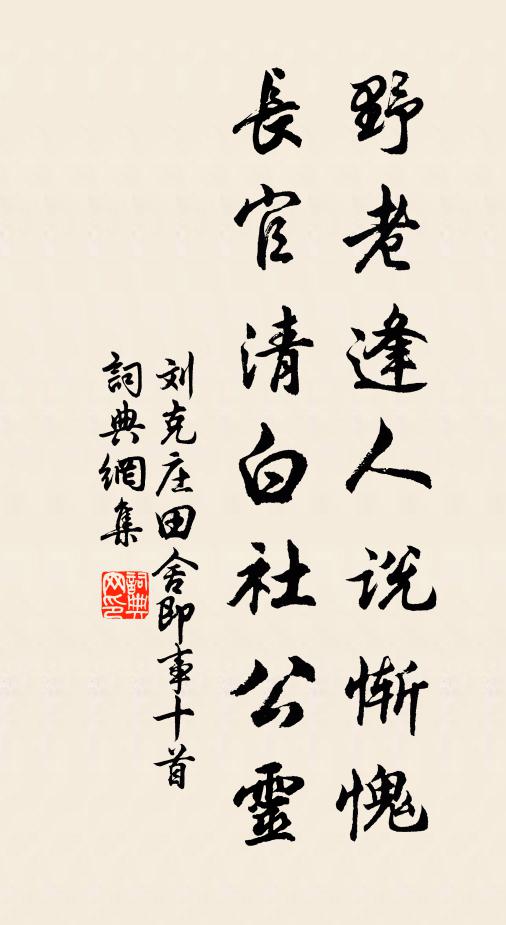 野老逢人说惭愧
長官清白社公靈
刘克庄田舍即事十首
詞典網集
詞典网印